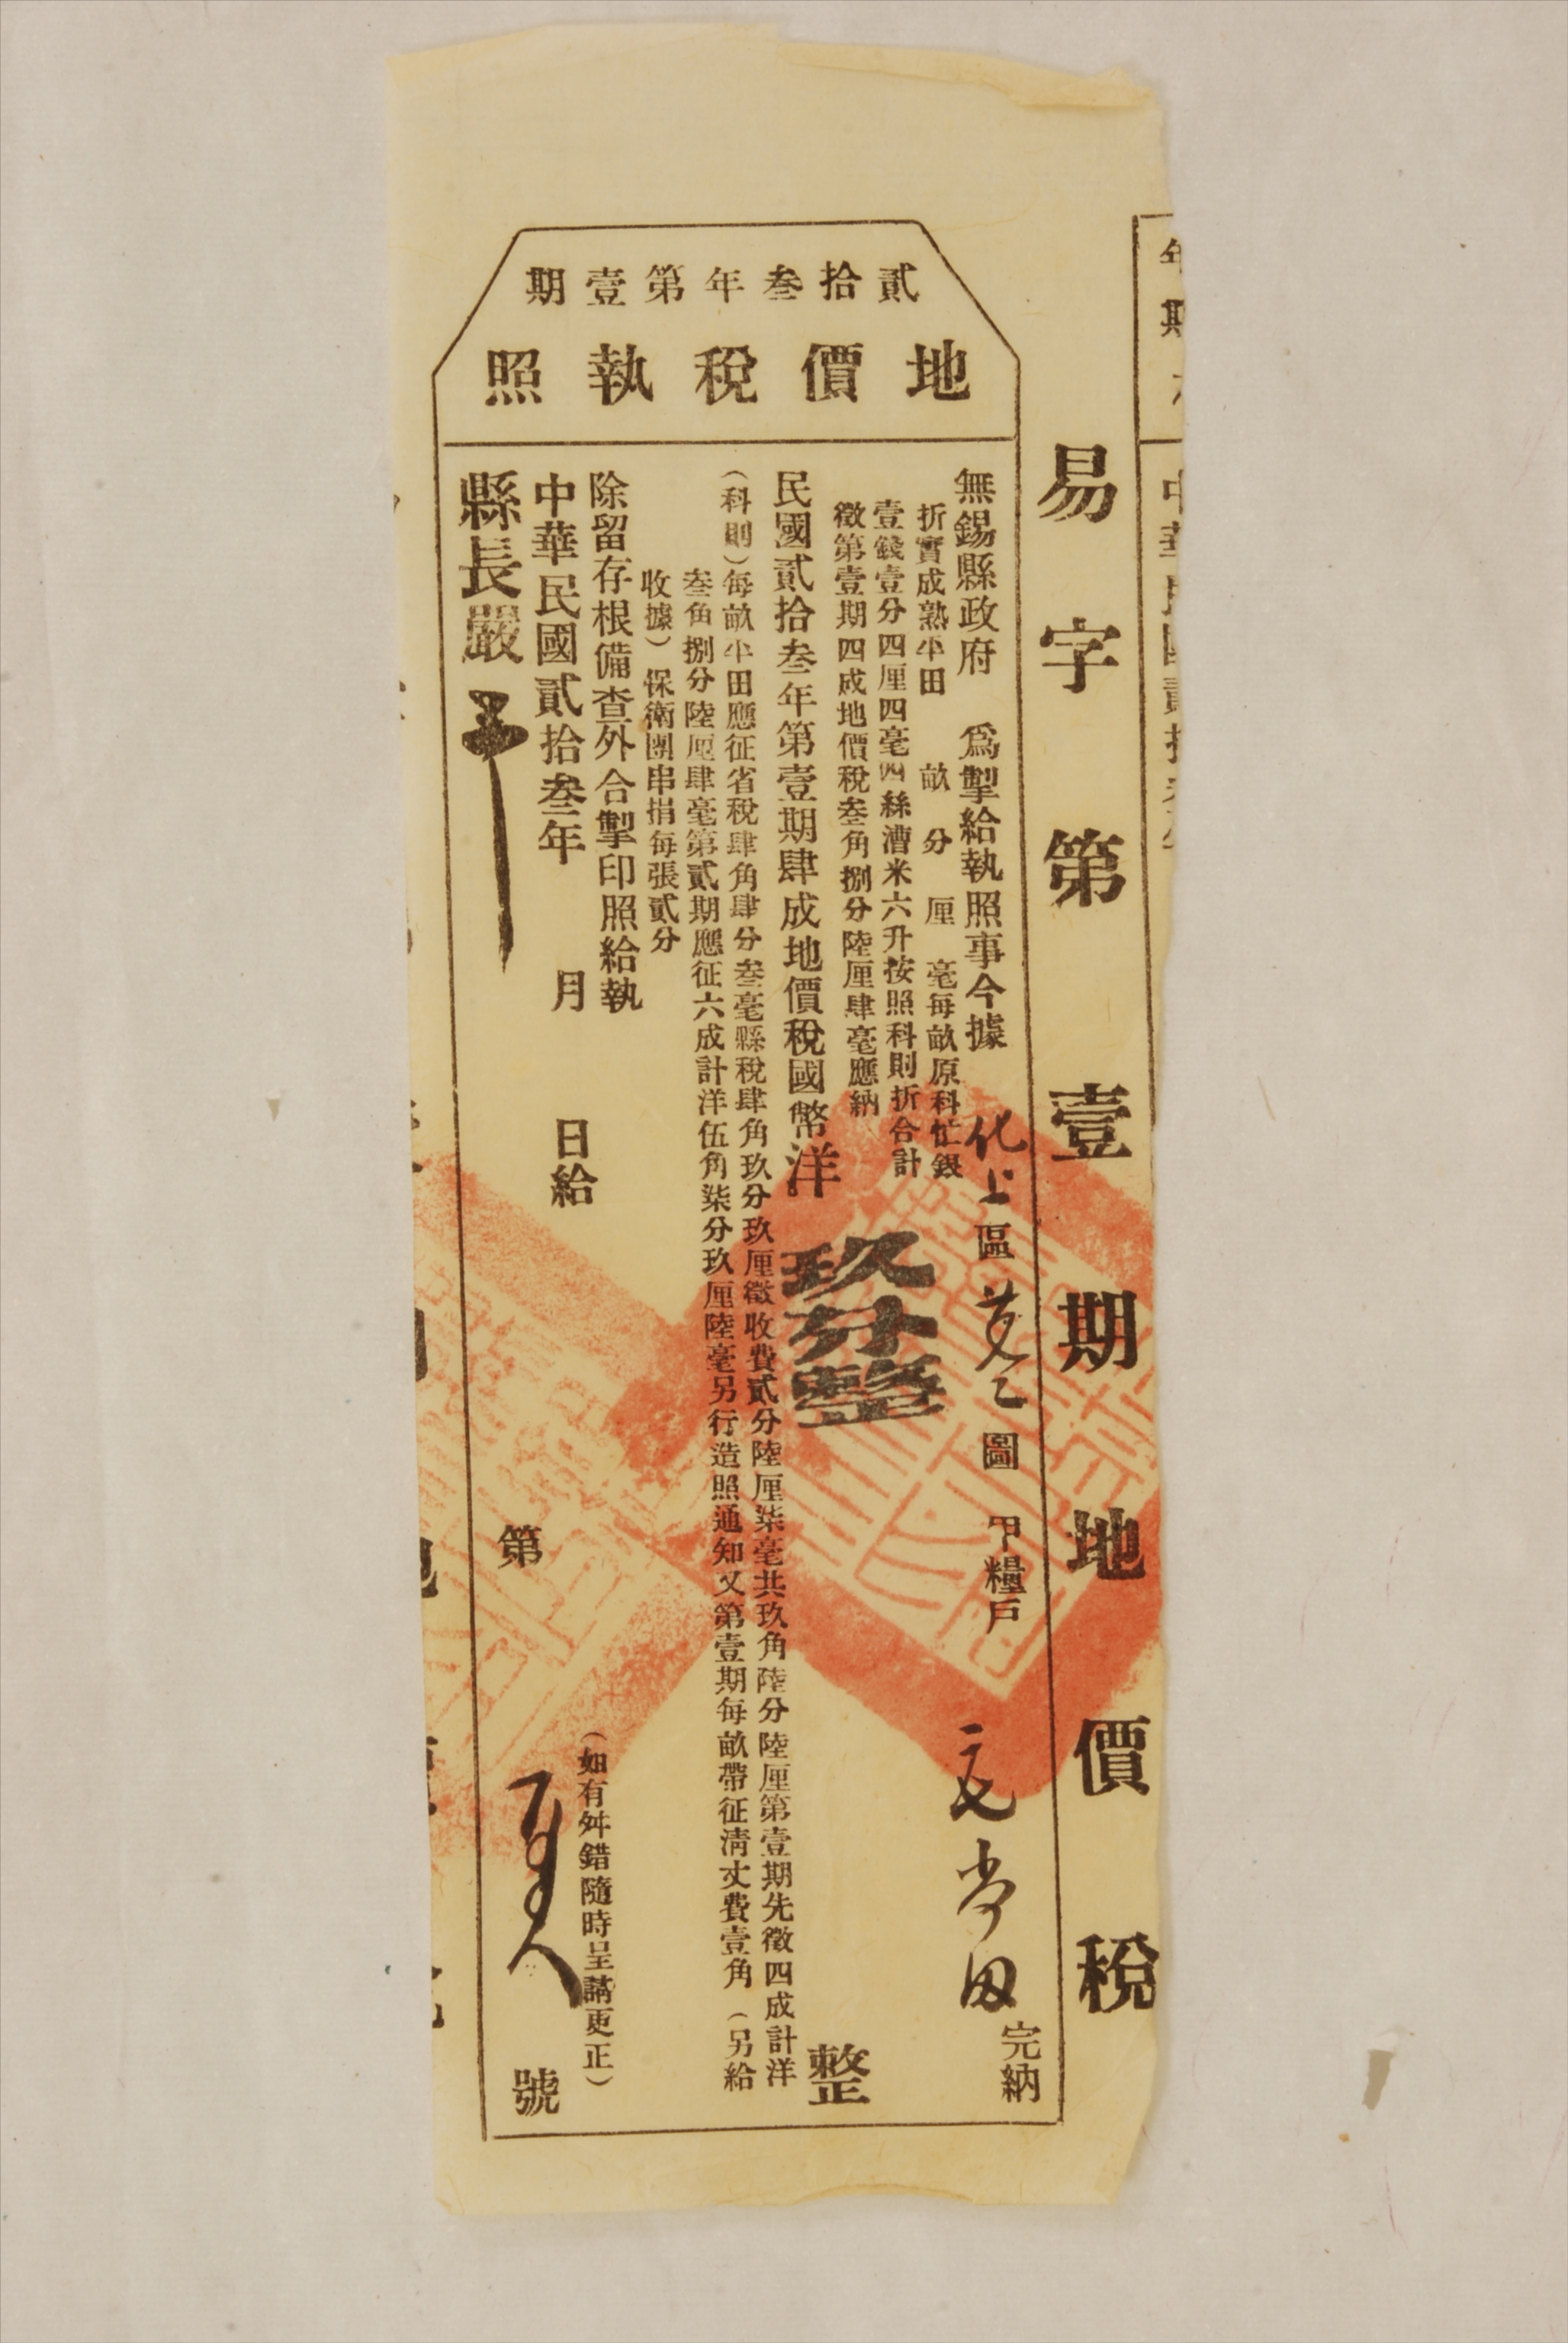 易字第壹期地價稅
貳拾叁年第壹期
地價稅執照
無錫縣政府 爲掣給執照事今據 化上區 圖 甲糧戶 完納
折實成熟平田 畝 分 厘 毫每畝原科忙銀
壹錢壹分四厘四毫四絲漕米六升按照科則折合計
徵第壹期四成地價稅叁角捌分陸厘肆毫應納
民國貳拾叁年第壹期肆成地價稅國幣洋 玖分整 整
(科則)每畝平田應征省稅肆角肆分叁毫縣稅肆角玖分玖厘徵收費貳分陸厘柒毫共玖角陸分陸厘第壹期先徵四成計洋
叁角捌分陸厘肆毫第貳期應征六成計洋伍角柒分玖厘陸毫另行造照通知又第壹期每畝帶征清丈費壹角(另給
收據)保衛團串捐每張貳分
除留存根備查外合掣印照給執
(如有舛錯隨時呈請更正)
中華民國貳拾叁年 月 日給
第 號
縣長嚴